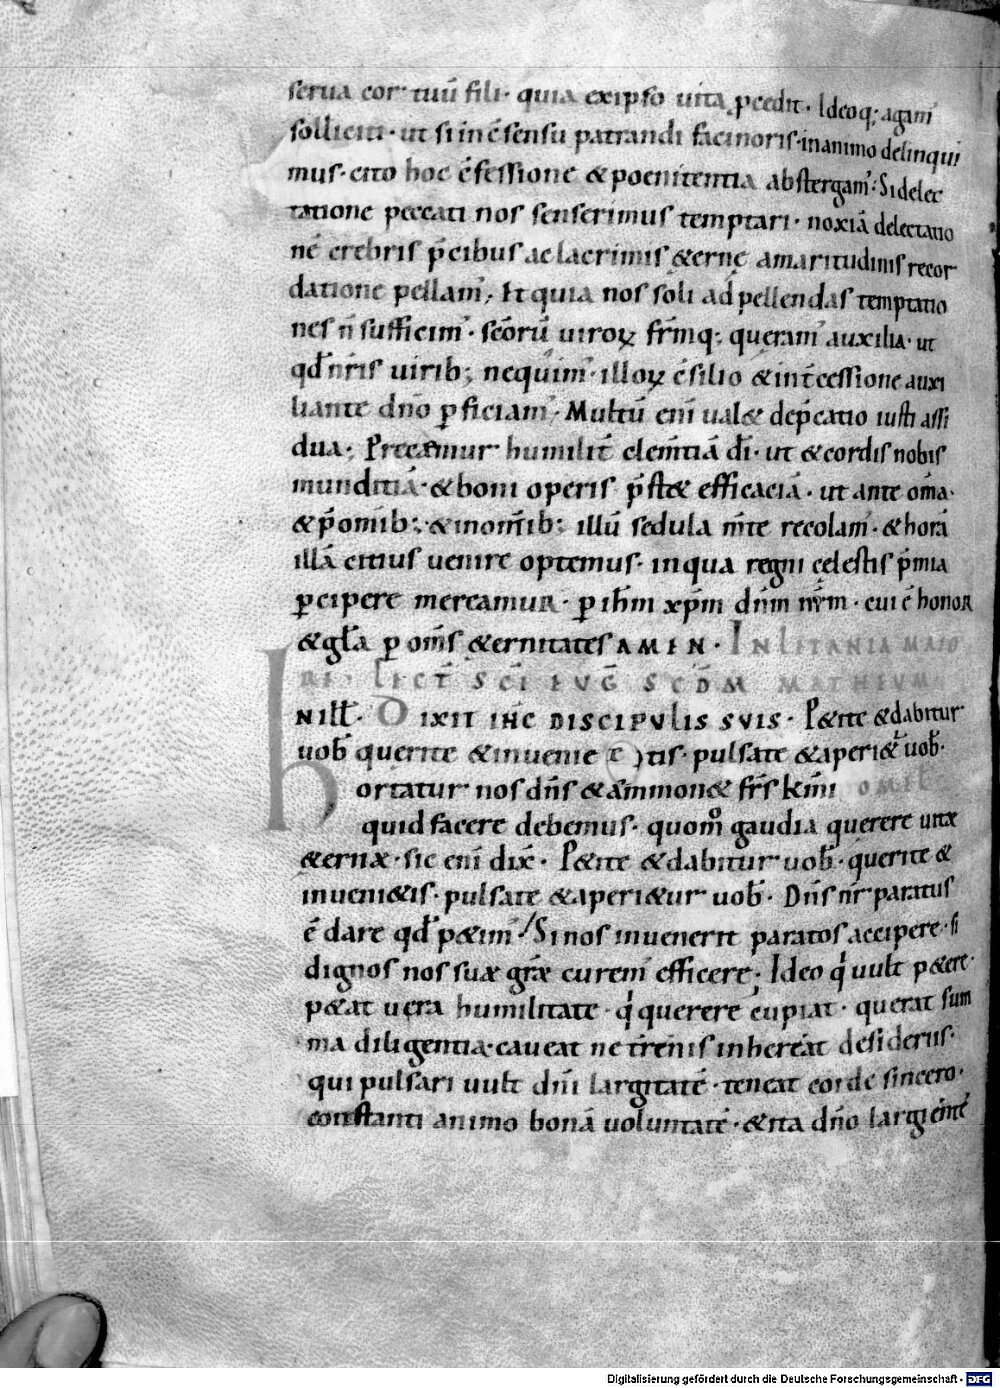 serua cor tuū fili· quia exipso uita ꝓcedit· Ideoq; agam᾽
solliciti· ut si in c̄sensu patrandi facinoris· inanimo delinqui
mus· cito hoc c̄fessione &poenitentia abstergam᾽· Sidelec
tatione peccati nos senserimus temptari· noxiā delectatio
nē crebris p̄cibus aclacrimis &ernę amaritudinis recor
datione pellam᾽; Et quia nos soli ad pellendas temptatio
nes n̄ sufficim᾽· sc̄orū uiroꝝ frm̄q; queram᾽ auxilia· ut
qd̄ nr̄is uirib; nequim᾽· illoꝝ c̄silio &int̄cessione auxi
liante dn̄o ꝑficiam᾽· Multū enī ual& dep̄catio iusti assi
dua; Precemur humilit̄ clem̄tiā dī· ut &cordis nobis
munditiā· &boni operis p̄st& efficaciā· ut ante om̄a·
&p̄ om̄ib; &inom̄ib; illū sedula m̄te recolam᾽· &horā
illā citius uenire optemus· inqua regni cęlestis p̄mia
ꝑcipere mereamur· ꝑ ihm̄ xp̄m dn̄m nr̄m· cui ē honor
&gl̄a ꝑ om̄s &ernitates AMEN· IN LITANIA MAIO
RI· LECT̄ SC̄I EVḠ SCD̄M MATHEVM
N ILL̄· DIXIT IHC DISCIPVLIS SVIS· P&ite &dabitur
uob̄ querite &inuenie tis· pulsate &aperi& uob̄·
hortatur nos dn̄s &ammon& fr̄s km̄i OMEL
quid facere debemus· quom̊ gaudia querere uitæ
&ernæ· sic enī dix̄· P&ite &dabitur uob̄· querite &
inueni&is· pulsate &aperi&ur uob̄· Dn̄s nr̄ paratus
ē dare qd̄ p&im᾽· Si nos inuenerit paratos accipere· si
dignos nos suæ gr̄æ curem᾽ efficere; Ideo q̇ uult p&ere·
p&at uera humilitate· q̇ querere cupiat· querat sum
ma diligentia· caueat ne t̄renis inhereat desideriis·
qui pulsari uult dn̄i largitatē· teneat corde sincero·
constanti animo bonā uoluntatē· &ita dn̄o largiente
Digitalisierung gefördert durch die Deutsche Forschungsgemeinschaft - DFG